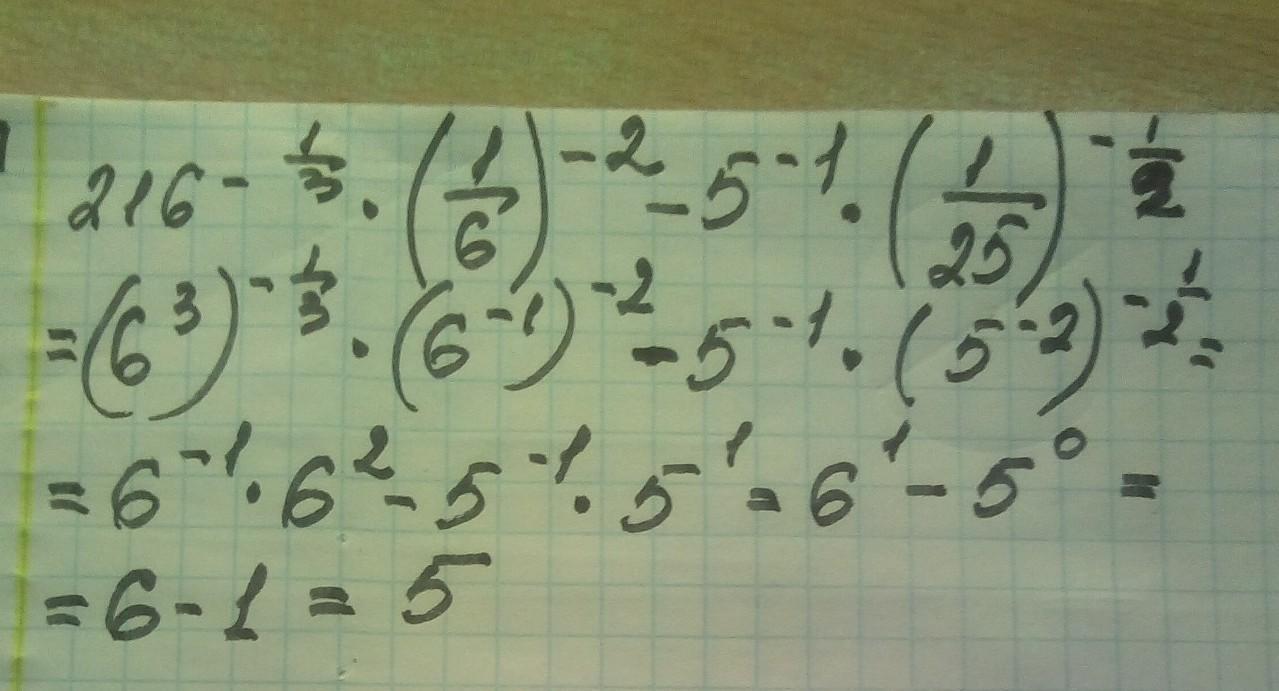 216^{-\frac{1}{3}} · (\frac{1}{6})^{-2} - 5^{-1} · (\frac{1}{25})^{-\frac{1}{2}}
= (6^{3})^{-\frac{1}{3}} · (6^{-1})^{-2} - 5^{-1} · (5^{-2})^{-\frac{1}{2}} =
= 6^{-1} · 6^{2} - 5^{-1} · 5^{1} = 6^{1} - 5^{0} =
= 6 - 1 = 5